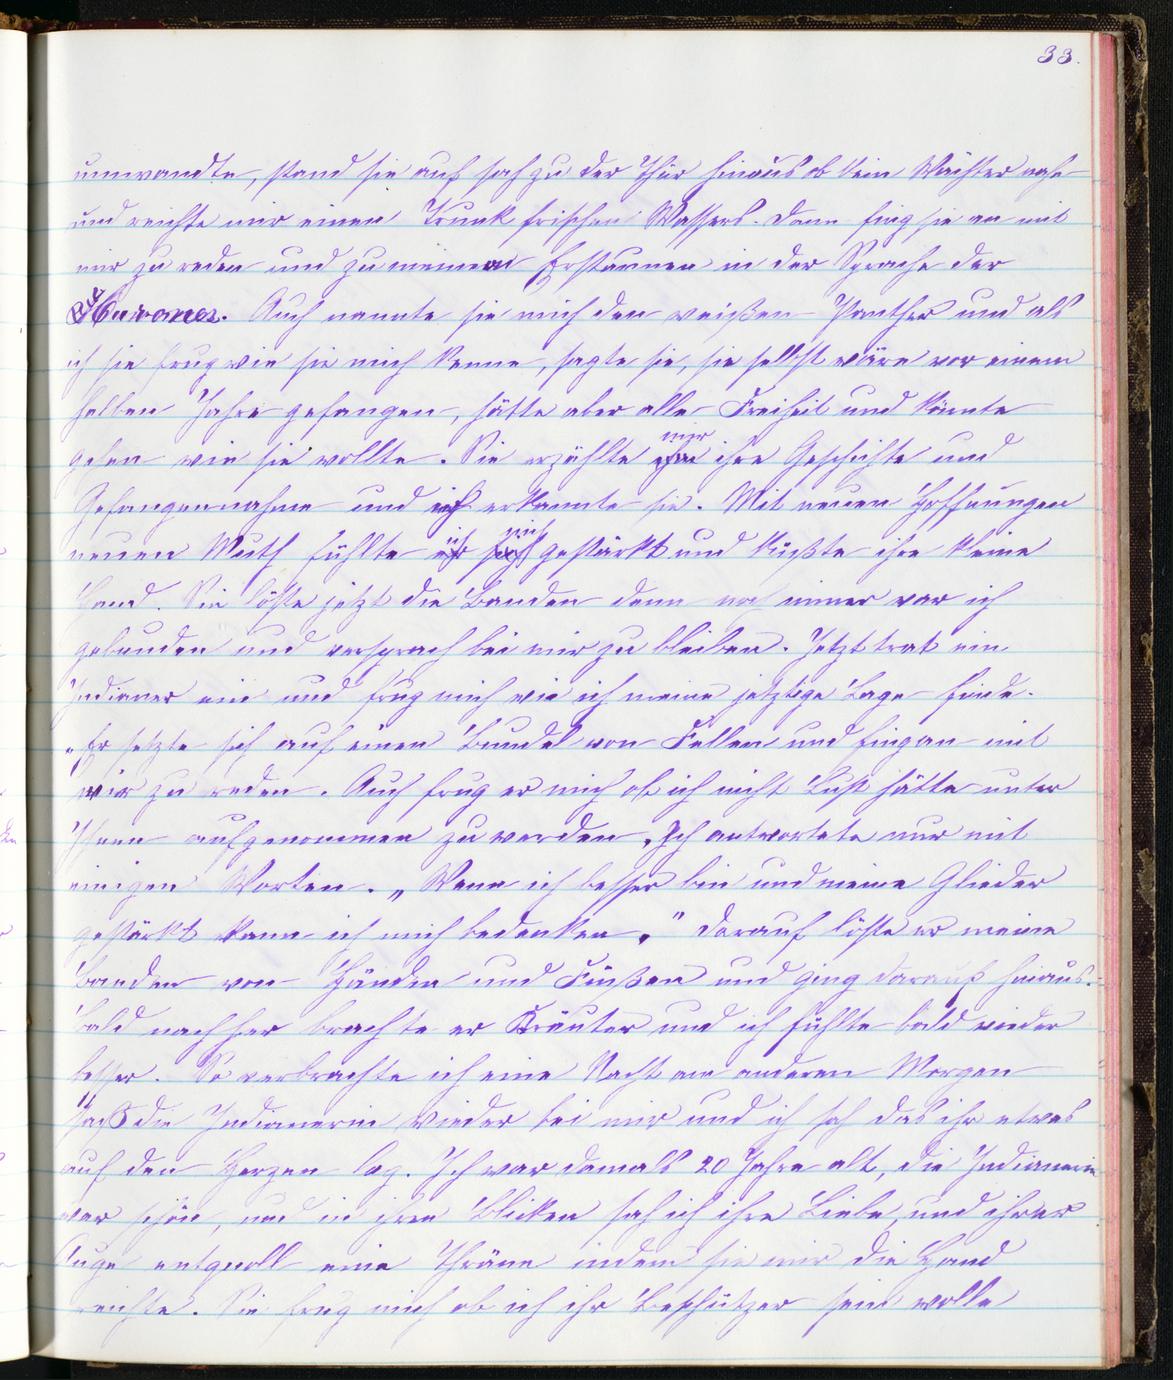 33.
umwandte, stand sie auf sah zu der Thür hinaus ob kein Wächter nahe
und reichte mir einen Trunk frischen Wassers. Dann fing sie an mit
mir zu reden und zu meinem Erstaunen in der Sprache der
Huronen. Auch nannte sie mich den weißen Panther und als
ich sie frug wie sie mich kenne, sagte sie, sie selbst wäre vor einem
halben Jahre gefangen, hätte aber alle Freiheit und könnte
gehen wie sie wollte. Sie erzählte mir ihre Geschichte und
Gefangennahme und ich erkannte sie. Mit neuen Hoffnungen
neuen Muth fühlte ich mich gestärkt und küßte ihre kleine
Hand. Sie löste jetzt die Banden denn noch immer war ich
gebunden und versprach bei mir zu bleiben. Jetzt trat ein
Indianer ein und frug mich wie ich meine jetztige Lage finde.
„Er setzte sich auf einen Bundel von Fellen und fing an mit
mir zu reden. Auch frug er mich ob ich nicht Lust hätte unter
Ihnen aufgenommen zu werden. Ich antwortete nur mit
einigen Worten. „Wenn ich besser bin und meine Glieder
gestärkt kann ich mich bedenken." Darauf löste er meine
Banden von Händen und Füßen und ging darauf hinaus.
Bald nachher brachte er Kräuter und ich fühlte bald wieder
besser. So verbrachte ich eine Nacht am anderen Morgen
saß die Indianerin wieder bei mir und ich sah das ihr etwas
auf den Herzen lag. Ich war damals 20 Jahre alt, die Indianerin
war schön, und in ihren Blicken sah ich ihre Liebe, und ihrer
Auge entquoll eine Thräne indem sie mir die Hand
reichte. Sie frug mich ob ich ihr Beschützer sein wolle